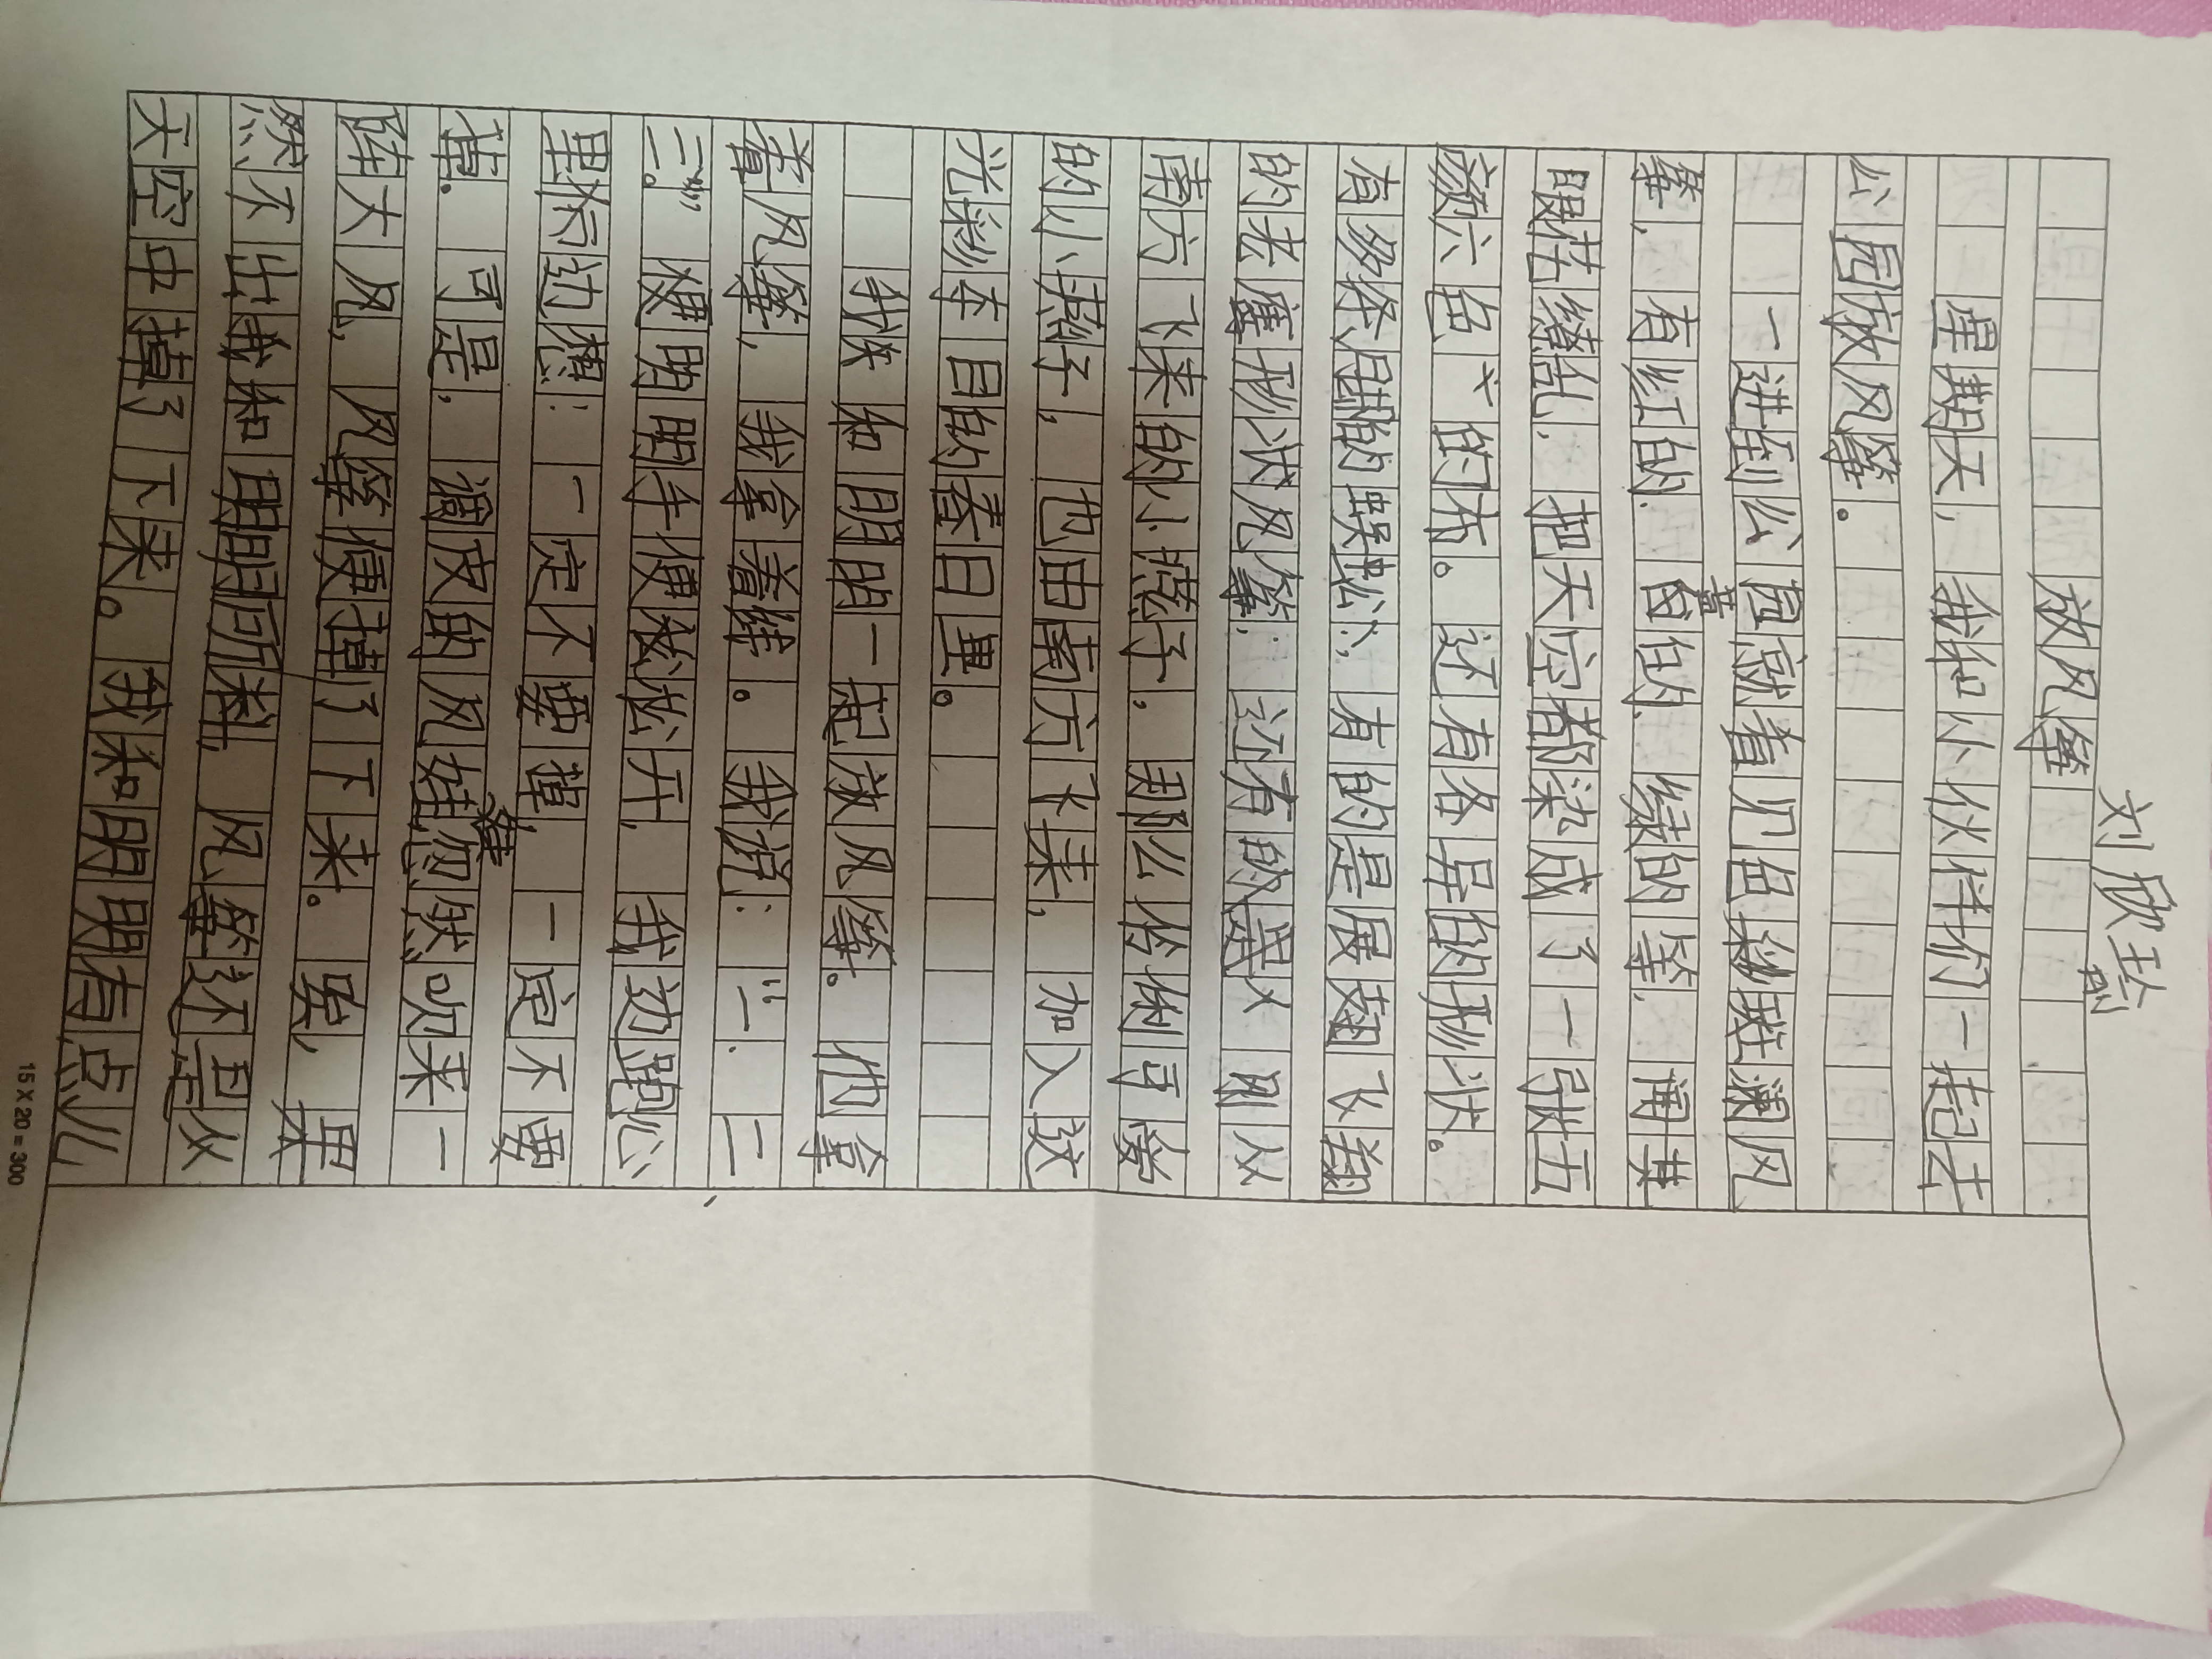 刘欣玲
放风筝
星期天，我和小伙伴们一起去
公园放风筝。
一进到公园就看见色彩斑斓风
筝，有红的、白的、绿的等，閒其
黄
眼花缭乱，把天空都染成了一张五
颜六色的布。还有各异的形状。
有多条腿的蜈蚣，有的是展翅飞翔
的老鹰形状风筝；还有的是从刚从
南方飞来的小燕子，那么伶俐可爱
的小燕子，也由南方飞来，加入这
光彩夺目的春日里。
我和明明一起放风筝。他拿
着风筝，我拿着线。我说：“一、二、
三。”嫂明明手便松开，我边跑心
里边想：一定不要掉，一定不要
掉。可是，调皮的风娃忽然吹来一
阵大风，风筝便掉了下来。哎，果
然不出我和明明所料，风筝还是从
天空中掉了下来。我和明明有点儿
15×20=300